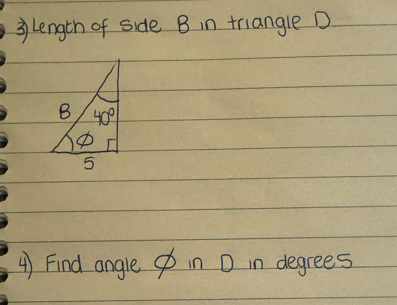 3) Length of side B in triangle D
B
40°
φ
5
4) Find angle φ in D in degrees